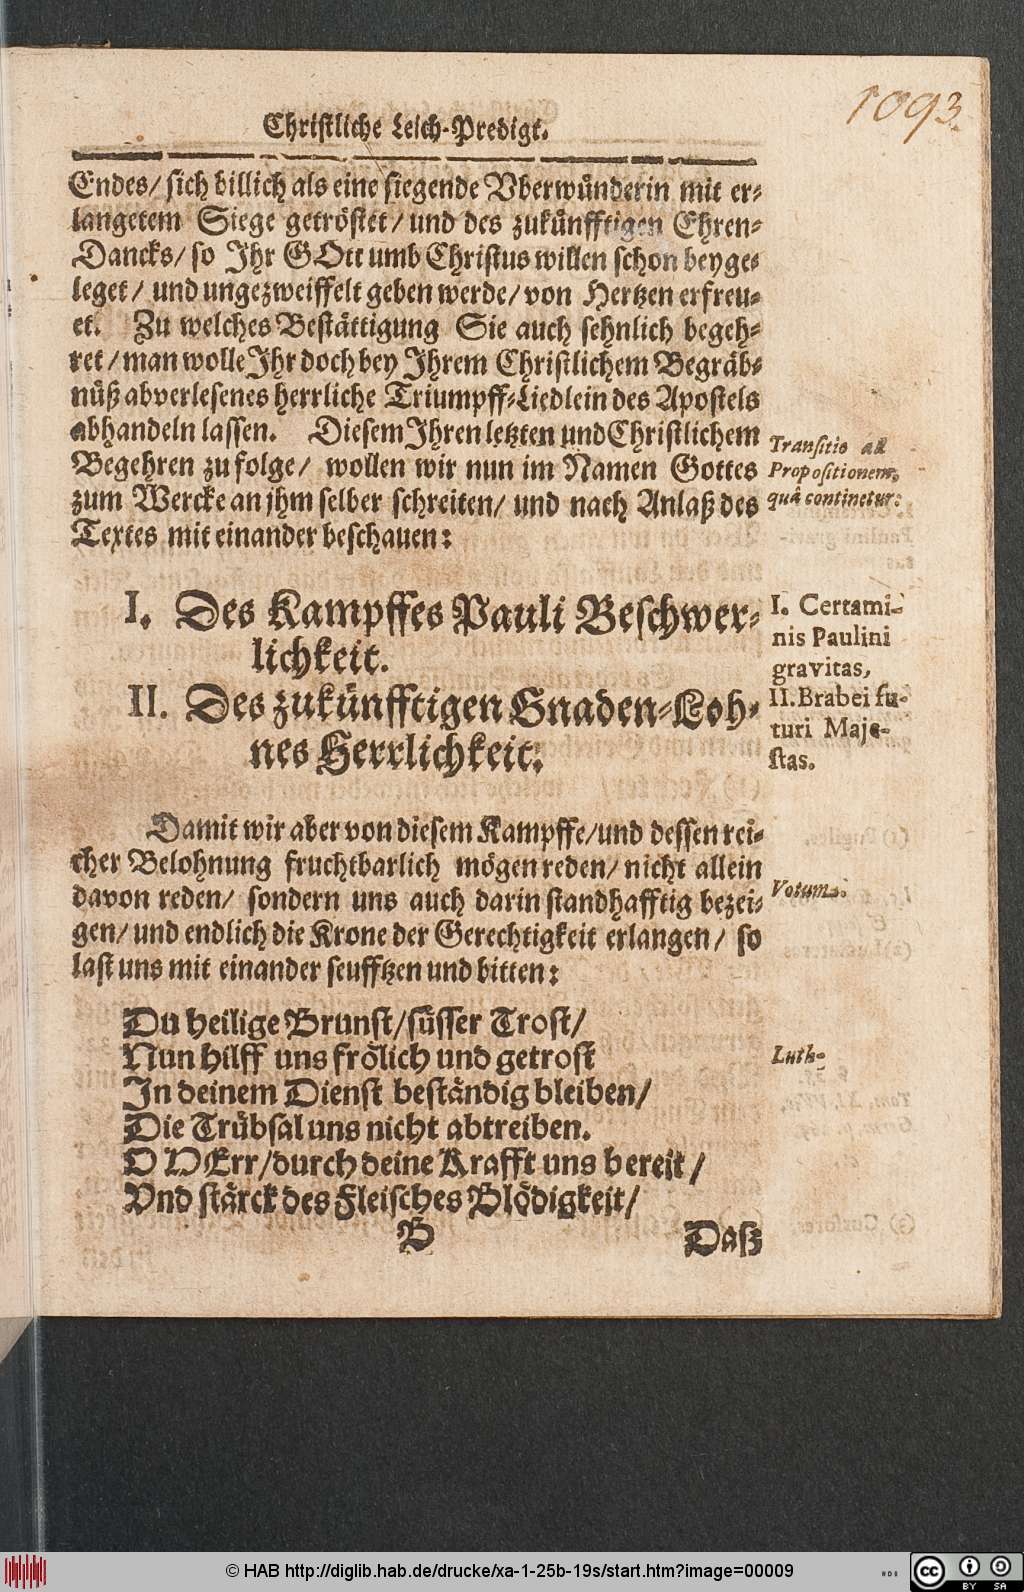 1093.
Christliche Leich-Predigt.
Endes/ sich billich als eine siegende Vberwünderin mit er-
langetem Siege getröstet/ und des zukünfftigen Ehren-
Dancks/ so Ihr GOtt umb Christus willen schon beyge-
leget/ und ungezweiffelt geben werde/ von Hertzen erfreu-
et. Zu welches Bestättigung Sie auch sehnlich begeh-
ret/ man wolle Ihr doch bey Ihrem Christlichem Begräb-
nüß abverlesenes herrliche Triumpff-Liedlein des Apostels
abhandeln lassen. Diesem Ihren letzten und Christlichem
Begehren zu folge/ wollen wir nun im Namen Gottes
zum Wercke an jhm selber schreiten/ und nach Anlaß des
Textes mit einander beschauen:
Transitio ad
Propositionem,
quâ continetur:
I. Des Kampffes Pauli Beschwer-
lichkeit.
II. Des zukünfftigen Gnaden-Loh-
nes Herrlichkeit.
I. Certami-
nis Paulini
gravitas,
II. Brabei fu-
turi Maje-
stas.
Damit wir aber von diesem Kampffe/ und dessen rei-
cher Belohnung fruchtbarlich mögen reden/ nicht allein
davon reden/ sondern uns auch darin standhafftig bezei-
gen/ und endlich die Krone der Gerechtigkeit erlangen/ so
last uns mit einander seufftzen und bitten:
Votum.
Du heilige Brunst/ süsser Trost/
Nun hilff uns frölich und getrost
In deinem Dienst beständig bleiben/
Die Trübsal uns nicht abtreiben.
O HErr/ durch deine Krafft uns bereit/
Vnd stärck des Fleisches Blödigkeit/
Luth.
B
Daß
© HAB http://diglib.hab.de/drucke/xa-1-25b-19s/start.htm?image=00009
cc BY SA